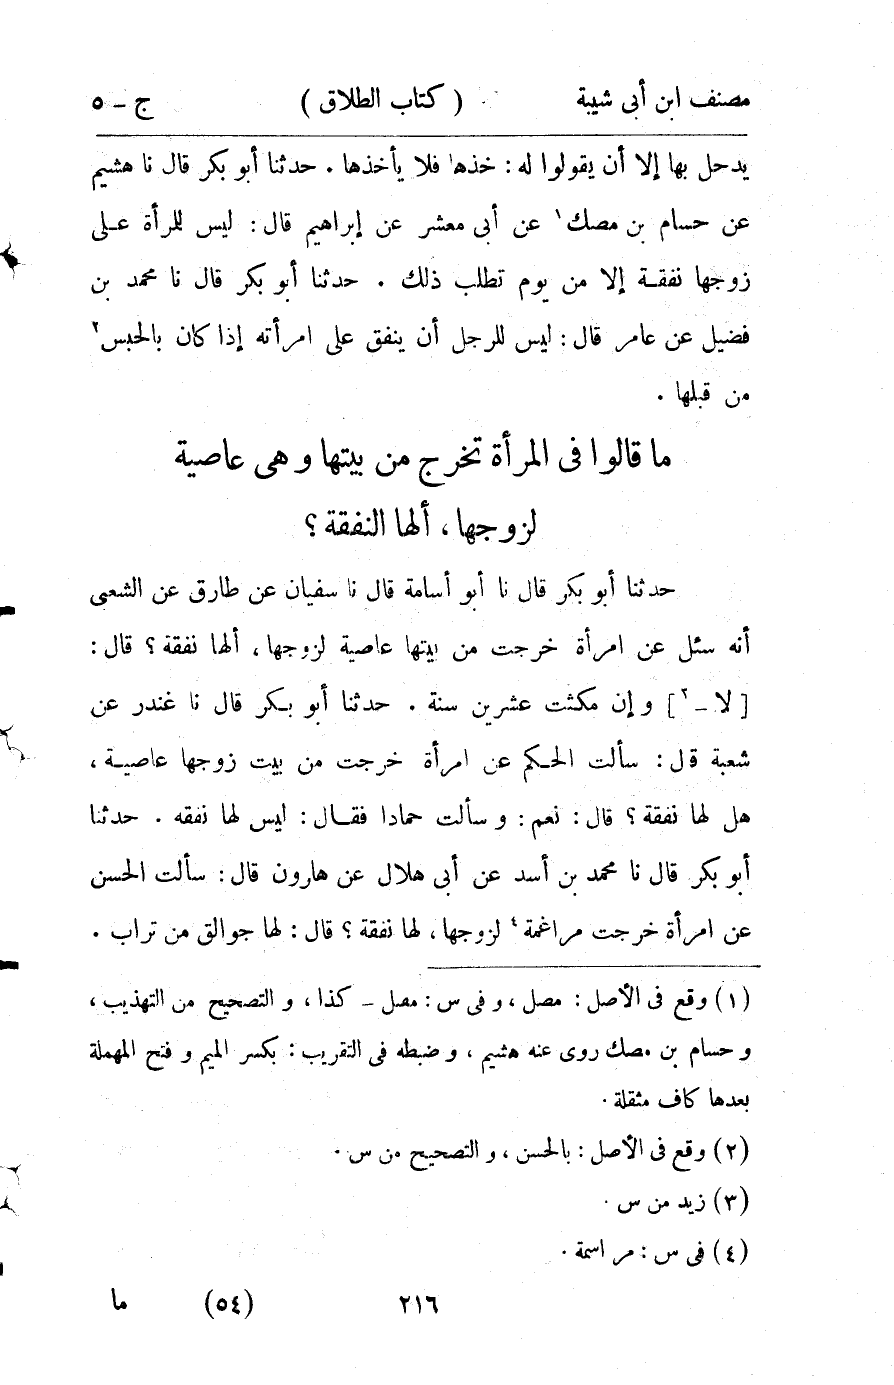 مصنف ابن أبى شيبة ( كتاب الطلاق ) ج - ٥
يدحل بها إلا أن يقولوا له : خذها فلا يأخذها . حدثنا أبو بكر قال نا هشيم
عن حسام بن مصك١ عن أبى معشر عن إبراهيم قال : ليس للرأة على
زوجها نفقة إلا من يوم تطلب ذلك . حدثنا أبو بكر قال نا محمد بن
فضيل عن عامر قال : ليس للرجل أن ينفق على امرأته إذا كان بالحبس٢
من قبلها .
ما قالوا فى المرأة تخرج من بيتها و هى عاصية
لزوجها ، ألها النفقة ؟
حدثنا أبو بكر قال نا أبو أسامة قال نا سفيان عن طارق عن الشعبى
أنه سئل عن امرأة خرجت من بيتها عاصية لزوجها ، ألها نفقة ؟ قال :
[ لا - ٣ ] و إن مكثت عشرين سنة . حدثنا أبو بكر قال نا غندر عن
شعبة قال : سألت الحكم عن امرأة خرجت من بيت زوجها عاصية ،
هل لها نفقة ؟ قال : نعم : و سألت حمادا فقال : ليس لها نفقه . حدثنا
أبو بكر قال نا محمد بن أسد عن أبى هلال عن هارون قال : سألت الحسن
عن امرأة خرجت مراغمة٤ لزوجها ، لها نفقة ؟ قال : لها جوالق من تراب .
(١) وقع فى الأصل : مصل ، و فى س : مصل - كذا ، و التصحيح من التهذيب ،
و حسام بن مصك روى عنه هشيم ، و ضبطه فى التقريب : بكسر الميم و فتح المهملة
بعدها كاف مثقلة .
(٢) وقع فى الأصل : بالحسن ، و التصحيح من س .
(٣) زيد من س .
(٤) فى س : مراسمة .
٢١٦ (٥٤) ما